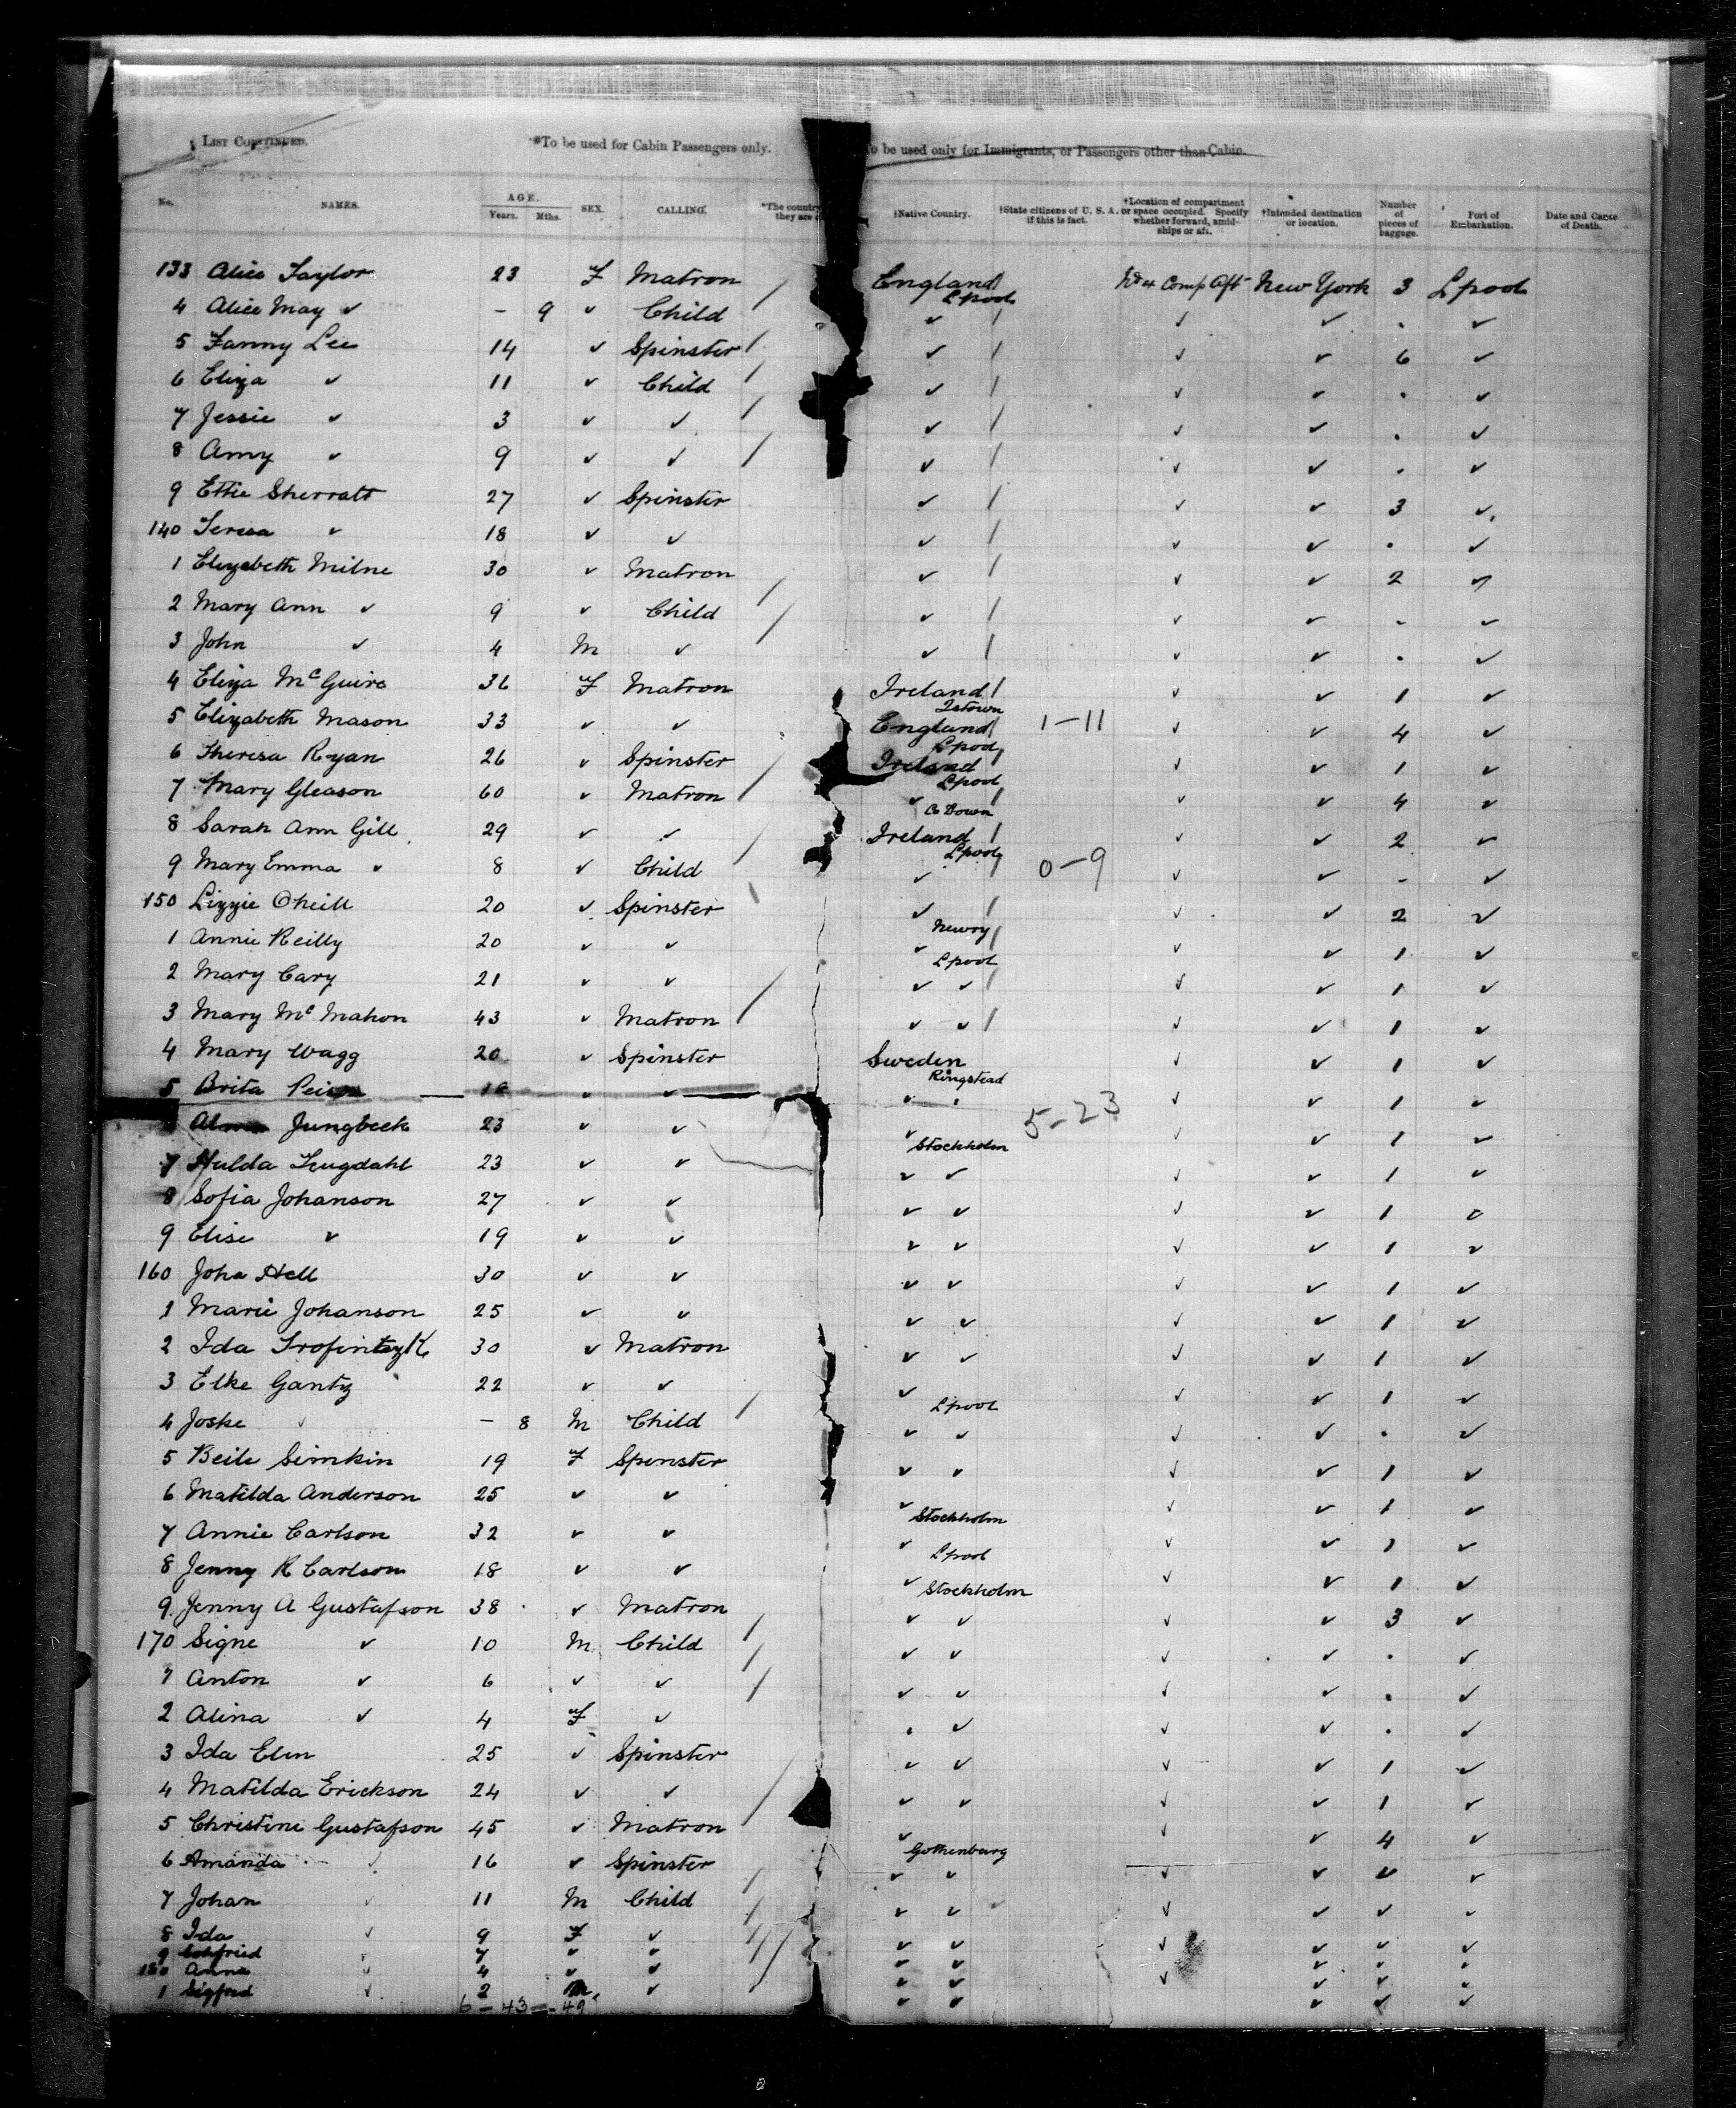 LIST CONTINUED. *To be used for Cabin Passengers only. To be used only for Immigrants, or Passengers other than Cabin.
No. NAMES. AGE. Years. Mths. SEX. CALLING. *The country they are †Native Country. †State citizens of U. S. A. if this is fact. †Location of compartment or space occupied. Specify whether forward, amidships or aft. †Intended destination or location. Number of pieces of baggage. Port of Embarkation. Date and Cause of Death.
133 Alice Taylor 23 F Matron / England / Lpool No 4 Comp Aft New York 3 Lpool
4 Alice May ✓ - 9 ✓ Child / ✓ / ✓ ✓ . ✓
5 Fanny Lee 14 ✓ Spinster / ✓ / ✓ ✓ 6 ✓
6 Eliza ✓ 11 ✓ Child / ✓ / ✓ ✓ . ✓
7 Jessie ✓ 3 ✓ ✓ / ✓ / ✓ ✓ . ✓
8 Amy ✓ 9 ✓ ✓ / ✓ / ✓ ✓ . ✓
9 Ettie Sherratt 27 ✓ Spinster ✓ / ✓ ✓ 3 ✓
140 Teresa ✓ 18 ✓ ✓ ✓ / ✓ ✓ . ✓
1 Elizabeth Milne 30 ✓ Matron / ✓ / ✓ ✓ 2 ✓
2 Mary Ann ✓ 9 ✓ Child / ✓ / ✓ ✓ - ✓
3 John ✓ 4 M ✓ ✓ / ✓ ✓ . ✓
4 Eliza McGuire 36 F Matron Ireland / Qstown ✓ ✓ 1 ✓
5 Elizabeth Mason 33 ✓ ✓ England / Lpool 1-11 ✓ ✓ 4 ✓
6 Theresa Ryan 26 ✓ Spinster / Ireland / Lpool ✓ ✓ 1 ✓
7 Mary Gleason 60 ✓ Matron / ✓ / Co Down ✓ ✓ 4 ✓
8 Sarah Ann Gill 29 ✓ ✓ / Ireland / Lpool ✓ ✓ 2 ✓
9 Mary Emma ✓ 8 ✓ Child ✓ 0-9 ✓ ✓ - ✓
150 Lizzie Oneill 20 ✓ Spinster ✓ / Newry ✓ ✓ 2 ✓
1 Annie Reilly 20 ✓ ✓ ✓ / Lpool ✓ ✓ 1 ✓
2 Mary Cary 21 ✓ ✓ / ✓ ✓ / ✓ ✓ 1 ✓
3 Mary McMahon 43 ✓ Matron / ✓ ✓ / ✓ ✓ 1 ✓
4 Mary Wagg 20 ✓ Spinster Sweden Ringstead ✓ ✓ 1 ✓
5 Brita ✓ ✓ ✓ ✓ ✓ ✓ 1 ✓
Jungbeck 23 ✓ ✓ ✓ Stockholm 5-23 ✓ ✓ 1 ✓
7 Hulda 23 ✓ ✓ ✓ ✓ ✓ ✓ 1 ✓
8 Sofia Johanson 27 ✓ ✓ ✓ ✓ ✓ ✓ 1 ✓
9 Elise ✓ 19 ✓ ✓ ✓ ✓ ✓ ✓ 1 ✓
160 Joha Hell 30 ✓ ✓ ✓ ✓ ✓ ✓ 1 ✓
1 Marie Johanson 25 ✓ ✓ ✓ ✓ ✓ ✓ 1 ✓
2 Ida 30 ✓ Matron ✓ ✓ ✓ ✓ 1 ✓
3 Elke Gantz 22 ✓ ✓ ✓ Lpool ✓ ✓ 1 ✓
4 Joske ✓ - 8 M Child / ✓ ✓ ✓ ✓ . ✓
5 Beile Simkin 19 F Spinster ✓ ✓ ✓ ✓ 1 ✓
6 Matilda Anderson 25 ✓ ✓ ✓ Stockholm ✓ ✓ 1 ✓
7 Annie Carlson 32 ✓ ✓ ✓ Lpool ✓ ✓ 1 ✓
8 Jenny R Carlson 18 ✓ ✓ ✓ Stockholm ✓ ✓ 1 ✓
9 Jenny A Gustafson 38 ✓ Matron / ✓ ✓ ✓ ✓ 3 ✓
170 Signe ✓ 10 M Child / ✓ ✓ ✓ ✓ . ✓
1 Anton ✓ 6 ✓ ✓ / ✓ ✓ ✓ ✓ . ✓
2 Alina ✓ 4 F ✓ . ✓ ✓ ✓ . ✓
3 Ida Elin 25 ✓ Spinster ✓ ✓ ✓ ✓ 1 ✓
4 Matilda Erickson 24 ✓ ✓ / ✓ ✓ ✓ ✓ 1 ✓
5 Christine Gustafson 45 ✓ Matron ✓ Gothenburg ✓ ✓ 4 ✓
6 Amanda ✓ 16 ✓ Spinster / ✓ ✓ ✓ ✓ ✓ ✓
7 Johan ✓ 11 M Child / ✓ ✓ ✓ ✓ ✓ ✓
8 Ida ✓ 9 F ✓ / ✓ ✓ ✓ ✓ ✓ ✓
9 ✓ 7 ✓ ✓ / ✓ ✓ ✓ ✓ ✓
180 Anna ✓ 4 ✓ ✓ / ✓ ✓ ✓ ✓ ✓ ✓
1 Sigfred ✓ 2 M ✓ ✓ ✓ ✓ ✓ ✓
6 - 43 - 49